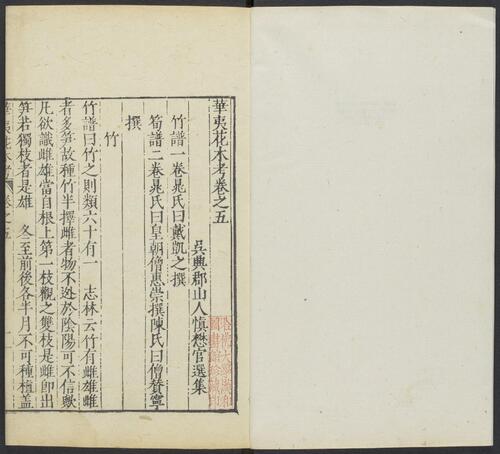 華夷花木考卷之五
吳興郡山人慎懋官選集
竹譜一卷晁氏曰戴凱之撰
筍譜二卷晁氏曰皇朝僧惠崇撰陳氏曰僧贊寧
撰
竹
竹譜曰竹之則類六十有一　志林云竹有雌雄雌
者多筍故種竹半擇雌者物不迯於陰陽可不信歟
凡欲識雌雄當自根上第一枝觀之雙枝是雌即出
筍若獨枝者是雄　冬至前後各半月不可種植盖
華夷花木考　卷之五